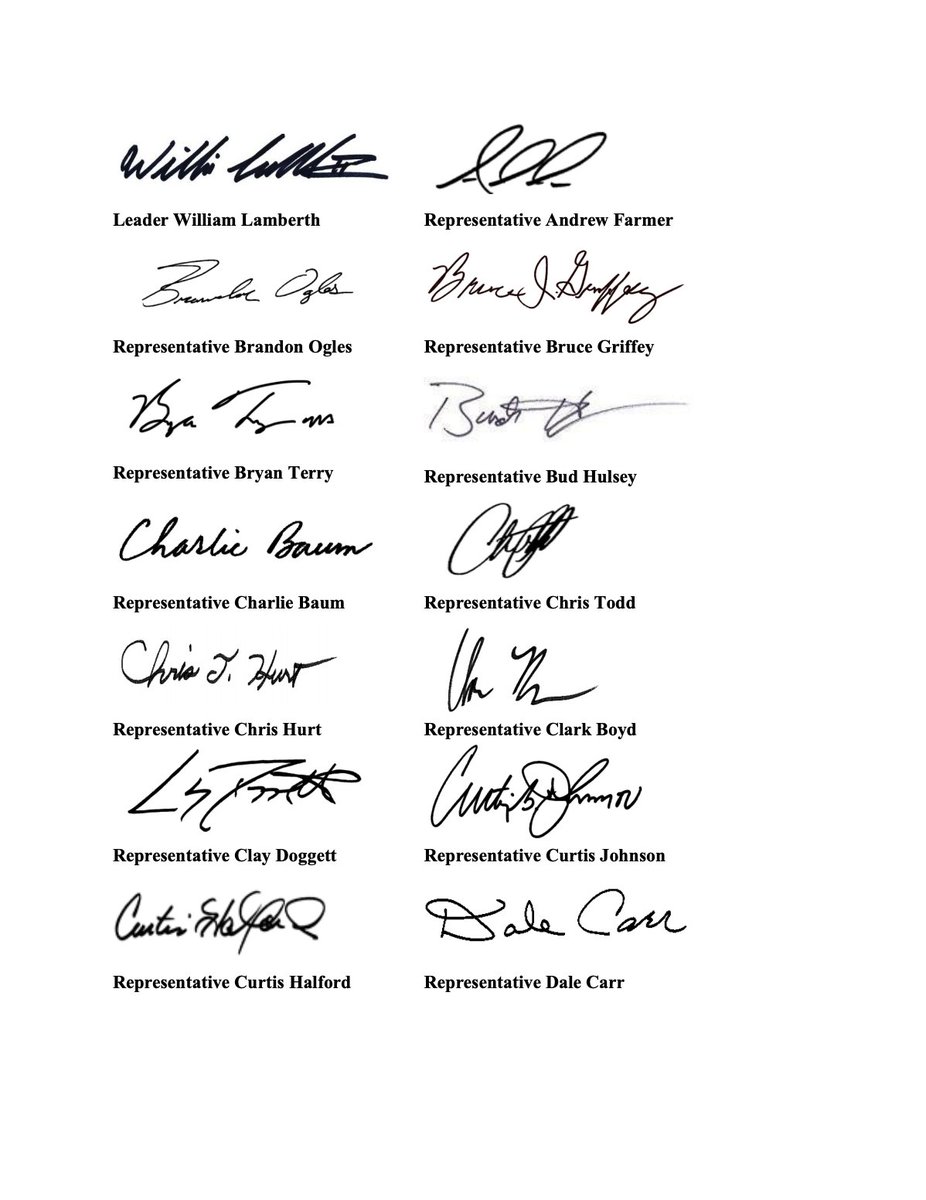 Leader William Lamberth
Representative Andrew Farmer
Brandon Ogles
Bruce J. Griffey
Representative Brandon Ogles
Representative Bruce Griffey
Representative Bryan Terry
Representative Bud Hulsey
Charlie Baum
Representative Charlie Baum
Representative Chris Todd
Chris J. Hurt
Representative Chris Hurt
Representative Clark Boyd
Curtis Johnson
Representative Clay Doggett
Representative Curtis Johnson
Curtis Halford
Dale Carr
Representative Curtis Halford
Representative Dale Carr